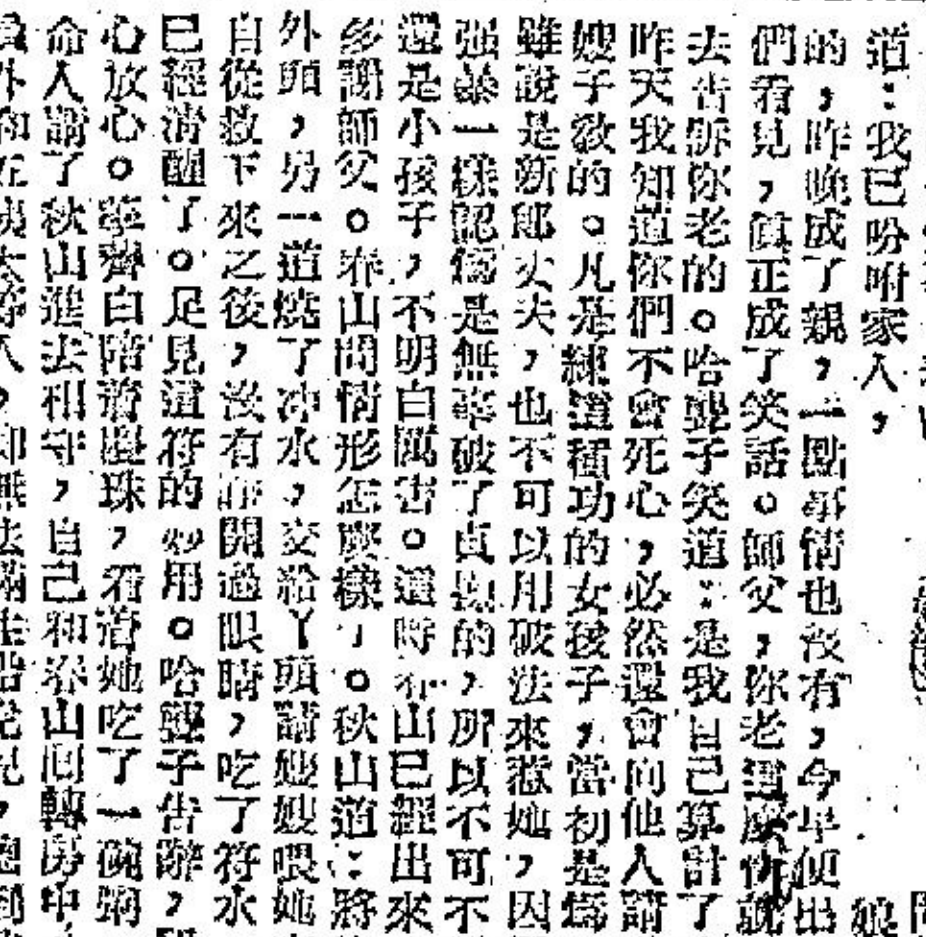 道：我已吩咐家人，
的，昨晚成了親，一點事情也沒有，今早便出
們看見，眞正成了笑話。師父，你老還麼快就
去告訴你老的。哈聾子笑道：是我自己算計了
昨天我知道你們不會死心，必然還會向他人請
嫂子敎的。凡是練這種功的女孩子，當初是爲
雖說是新郎丈夫，也不可以用破法來惹她，因
强暴一樣認爲是無辜破了貞操的，所以不可不
還是小孩子，不明白厲害。這時春山已經出來
多謝師父。春山問情形怎麼樣了。秋山道：將
外頭，另一道燒了冲水，交給丫頭請嫂嫂喂她
自從救下來之後，沒有睜開過眼睛，吃了符水
已經清醒了。足見這符的妙用。哈聾子告辭，
心放心。華齊白陪着凝珠，看着她吃了一碗粥
命人請了秋山進去相守，自己和春山回轉房中